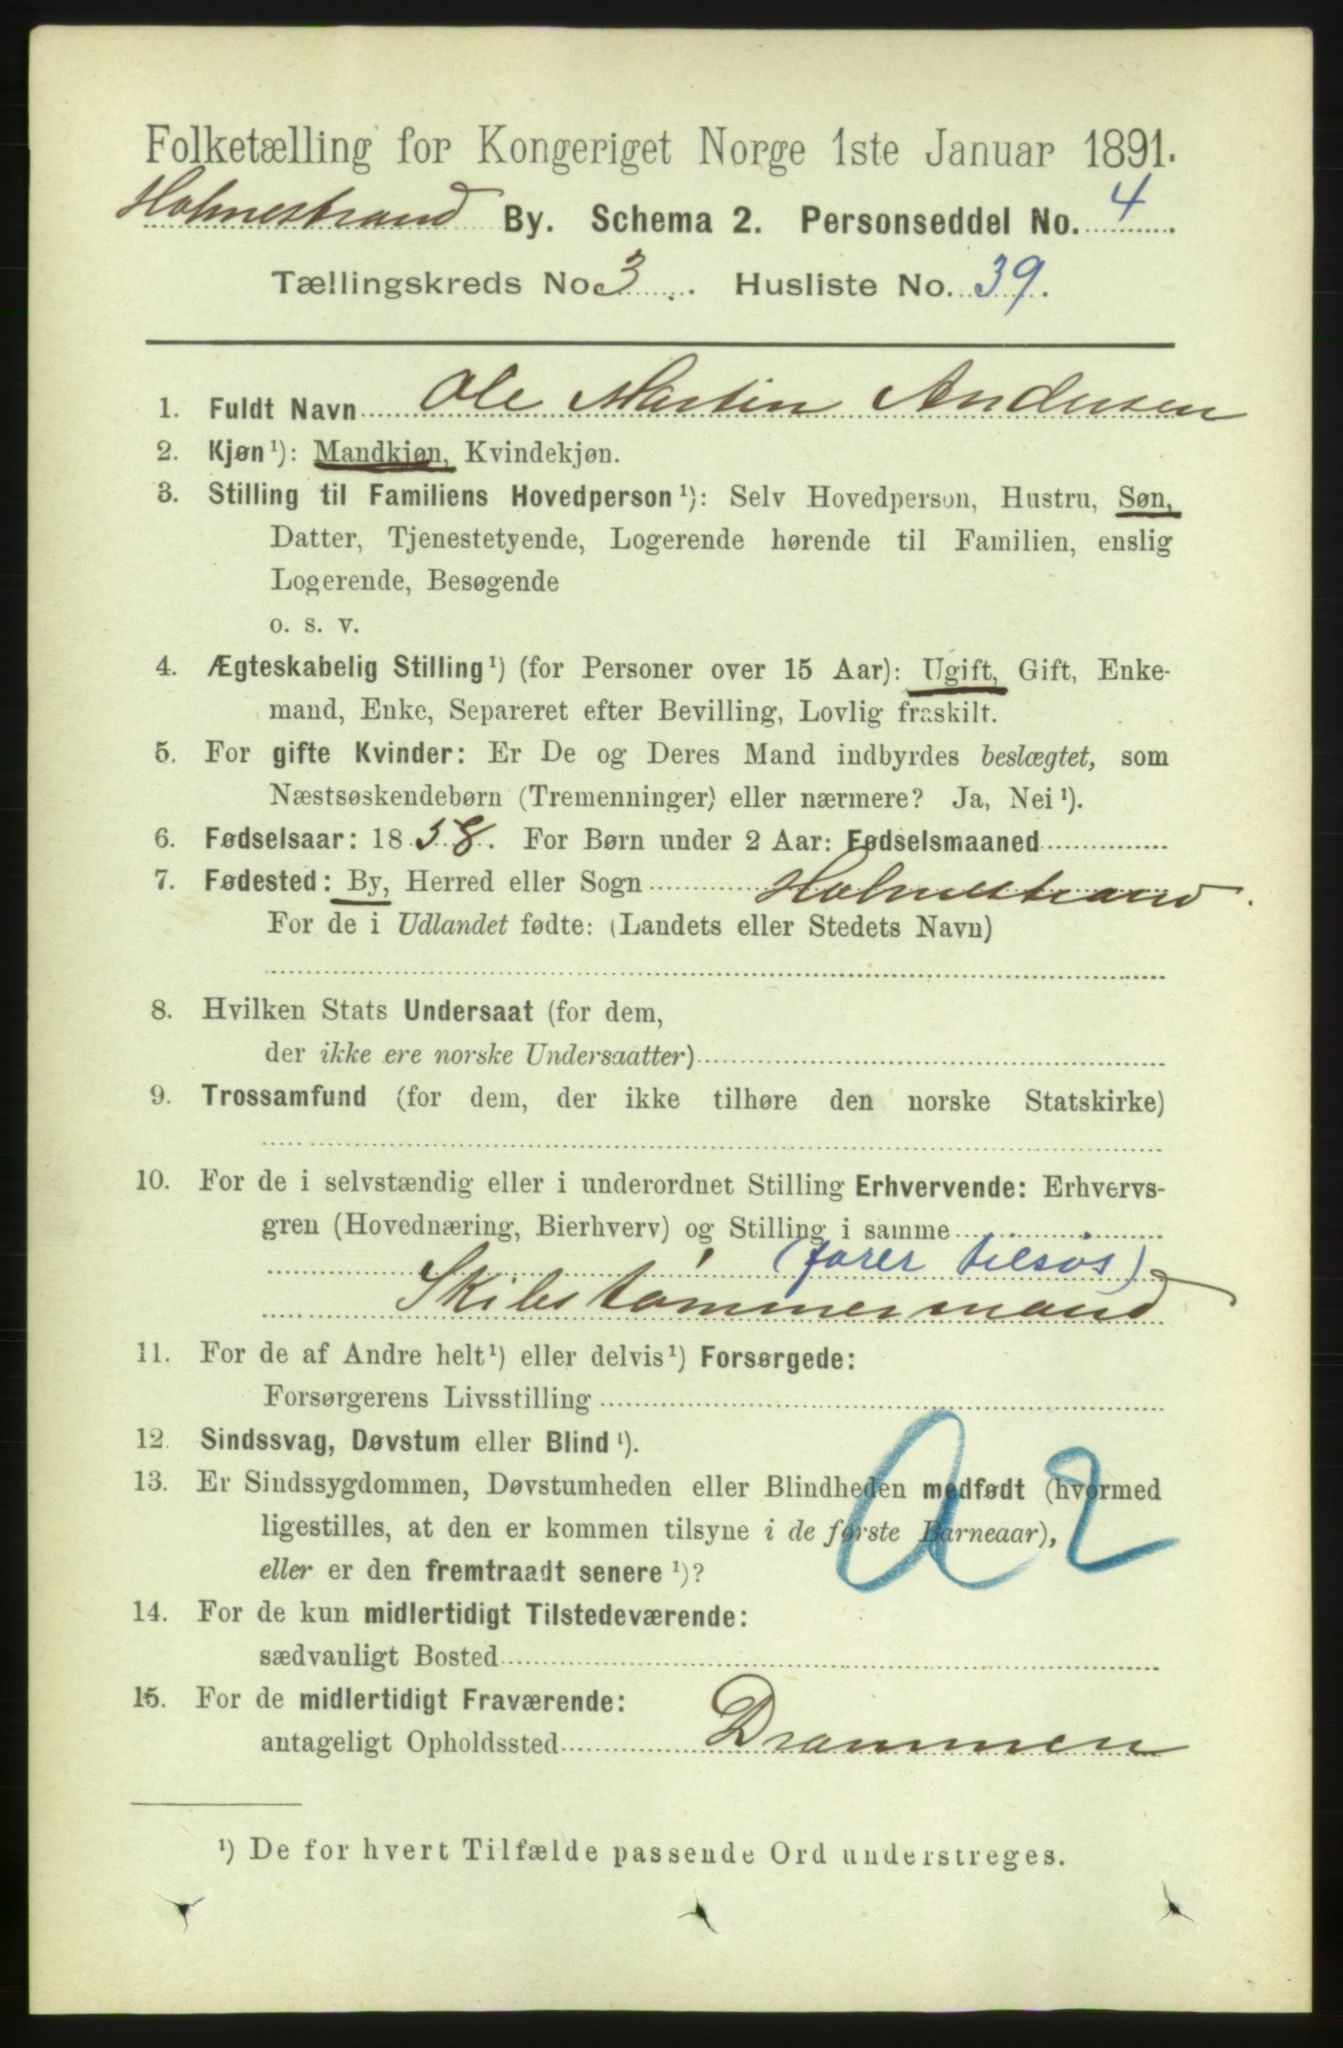 Folketælling for Kongeriget Norge 1ste Januar 1891.
Holmestrand By. Schema 2. Personseddel No. 4
Tællingskreds No. 3 Husliste No. 39.
1. Fuldt Navn Ole Martin Andersen
2. Kjøn¹): Mandkjøn, Kvindekjøn.
3. Stilling til Familiens Hovedperson¹): Selv Hovedperson, Hustru, Søn,
Datter, Tjenestetyende, Logerende hørende til Familien, enslig
Logerende, Besøgende
o. s. v.
4. Ægteskabelig Stilling¹) (for Personer over 15 Aar): Ugift, Gift, Enke-
mand, Enke, Separeret efter Bevilling, Lovlig fraskilt.
5. For gifte Kvinder: Er De og Deres Mand indbyrdes beslægtet, som
Næstsøskendebørn (Tremenninger) eller nærmere? Ja, Nei¹).
6. Fødselsaar: 1858. For Børn under 2 Aar: Fødselsmaaned
7. Fødested: By, Herred eller Sogn Holmestrand.
For de i Udlandet fødte: (Landets eller Stedets Navn)
8. Hvilken Stats Undersaat (for dem,
der ikke ere norske Undersaatter)
9. Trossamfund (for dem, der ikke tilhøre den norske Statskirke)
10. For de i selvstændig eller i underordnet Stilling Erhvervende: Erhvervs-
gren (Hovednæring, Bierhverv) og Stilling i samme
(farer tilsøs)
Skibstømmermand
11. For de af Andre helt¹) eller delvis¹) Forsørgede:
Forsørgerens Livsstilling
12. Sindssvag, Døvstum eller Blind¹).
13. Er Sindssygdommen, Døvstumheden eller Blindheden medfødt (hvormed
ligestilles, at den er kommen tilsyne i de første Barneaar),
eller er den fremtraadt senere¹)?
a 2
14. For de kun midlertidigt Tilstedeværende:
sædvanligt Bosted
15. For de midlertidigt Fraværende:
antageligt Opholdssted Drammen
¹) De for hvert Tilfælde passende Ord understreges.